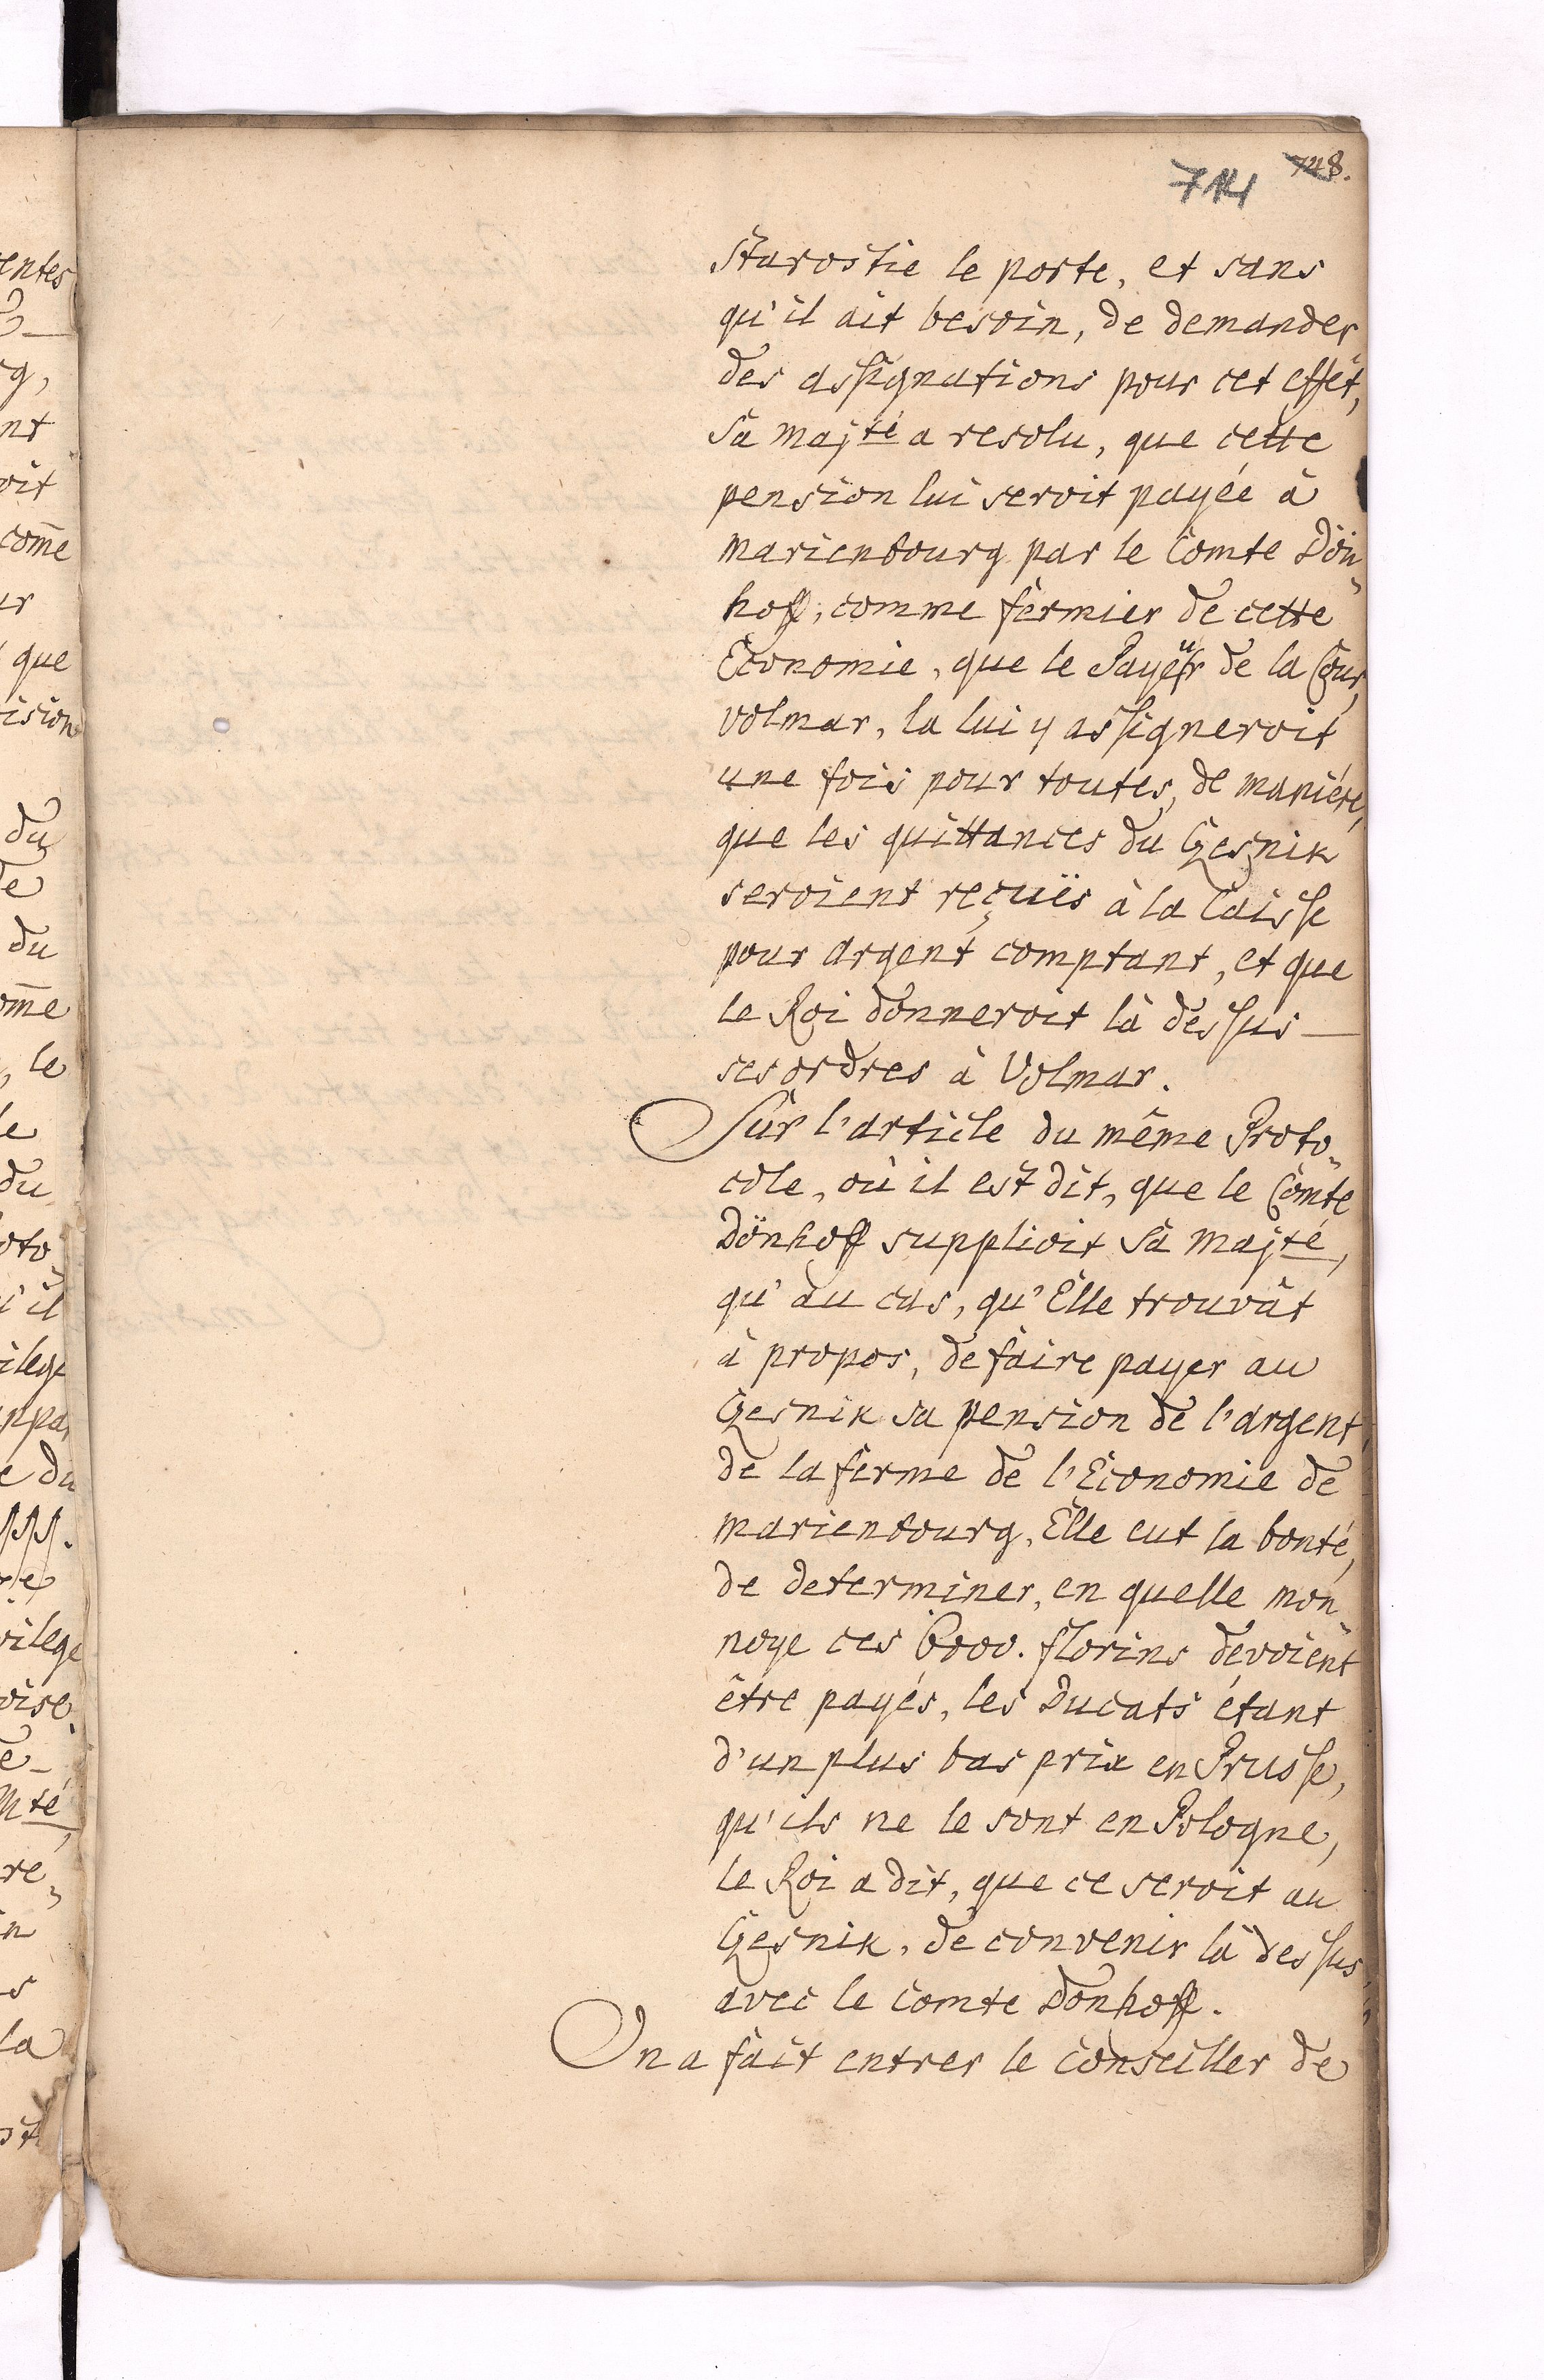 748.
714
Starostie le porte, et sans
qu'il ait besoin, de demander
des assignations pour cet effét,
Sa Majté a resolu, que cette
pension lui seroit payée à
Marienbourg par le Comte Dön-
hoff, comme fermier de cette
Economie, que le Payeur de la Cour,
Volmar, la lui y assigneroit
une fois pour toutes, de maniére,
que les quittances du Czesnik
seroient reçuës à la Caisse
pour argent comptant, et que
le Roi donneroit là dessus
ses ordres à Volmar.
Sur l'article du même Proto-
cole, où il est dit, que le Comte
Dönhoff supplioit Sa Majté,
qu'au cas, qu'Elle trouvât
à propos, de faire payer au
Czesnik sa pension de l'argent
de la ferme de l'Economie de
Marienbourg, Elle eut la bonté,
de determiner, en quelle mon-
noye ces 6000. florins devoient
être payés, les Ducats étant
d'un plus bas prix en Prusse,
qu'ils ne le sont en Pologne,
le Roi a dit, que ce seroit au
Czesnik, de convenir là dessus
avec le Comte Donhoff.
On a fait entrer le Conseiller de